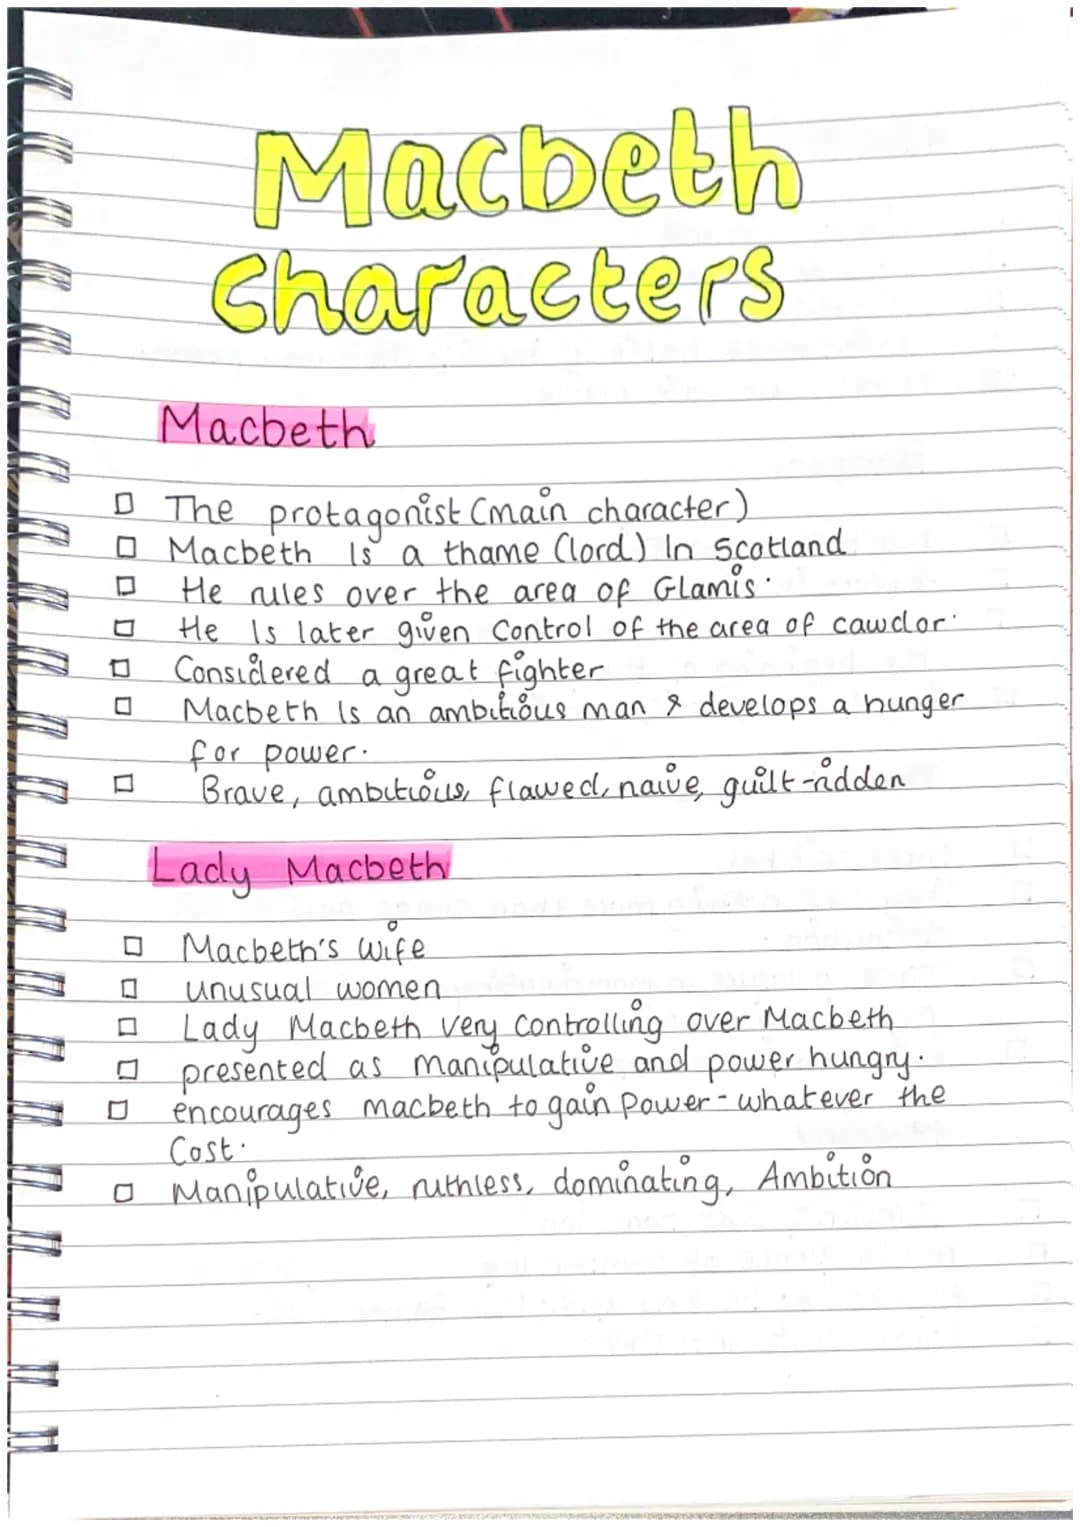 Macbeth
characters
Macbeth
The protagonist (main character)
Macbeth Is a thame (lord) In Scotland
He rules over the area of Glamis.
He Is later given Control of the area of cawdor.
Considered a great fighter
Macbeth Is an ambitious man & develops a hunger
for power.
Brave, ambitious, flawed, naive, guilt-ridden
Lady Macbeth
Macbeth's wife
unusual women
Lady Macbeth very controlling over Macbeth
presented as manipulative and power hungry.
encourages macbeth to gain power - whatever the
Cost.
Manipulative, ruthless, dominating, Ambition